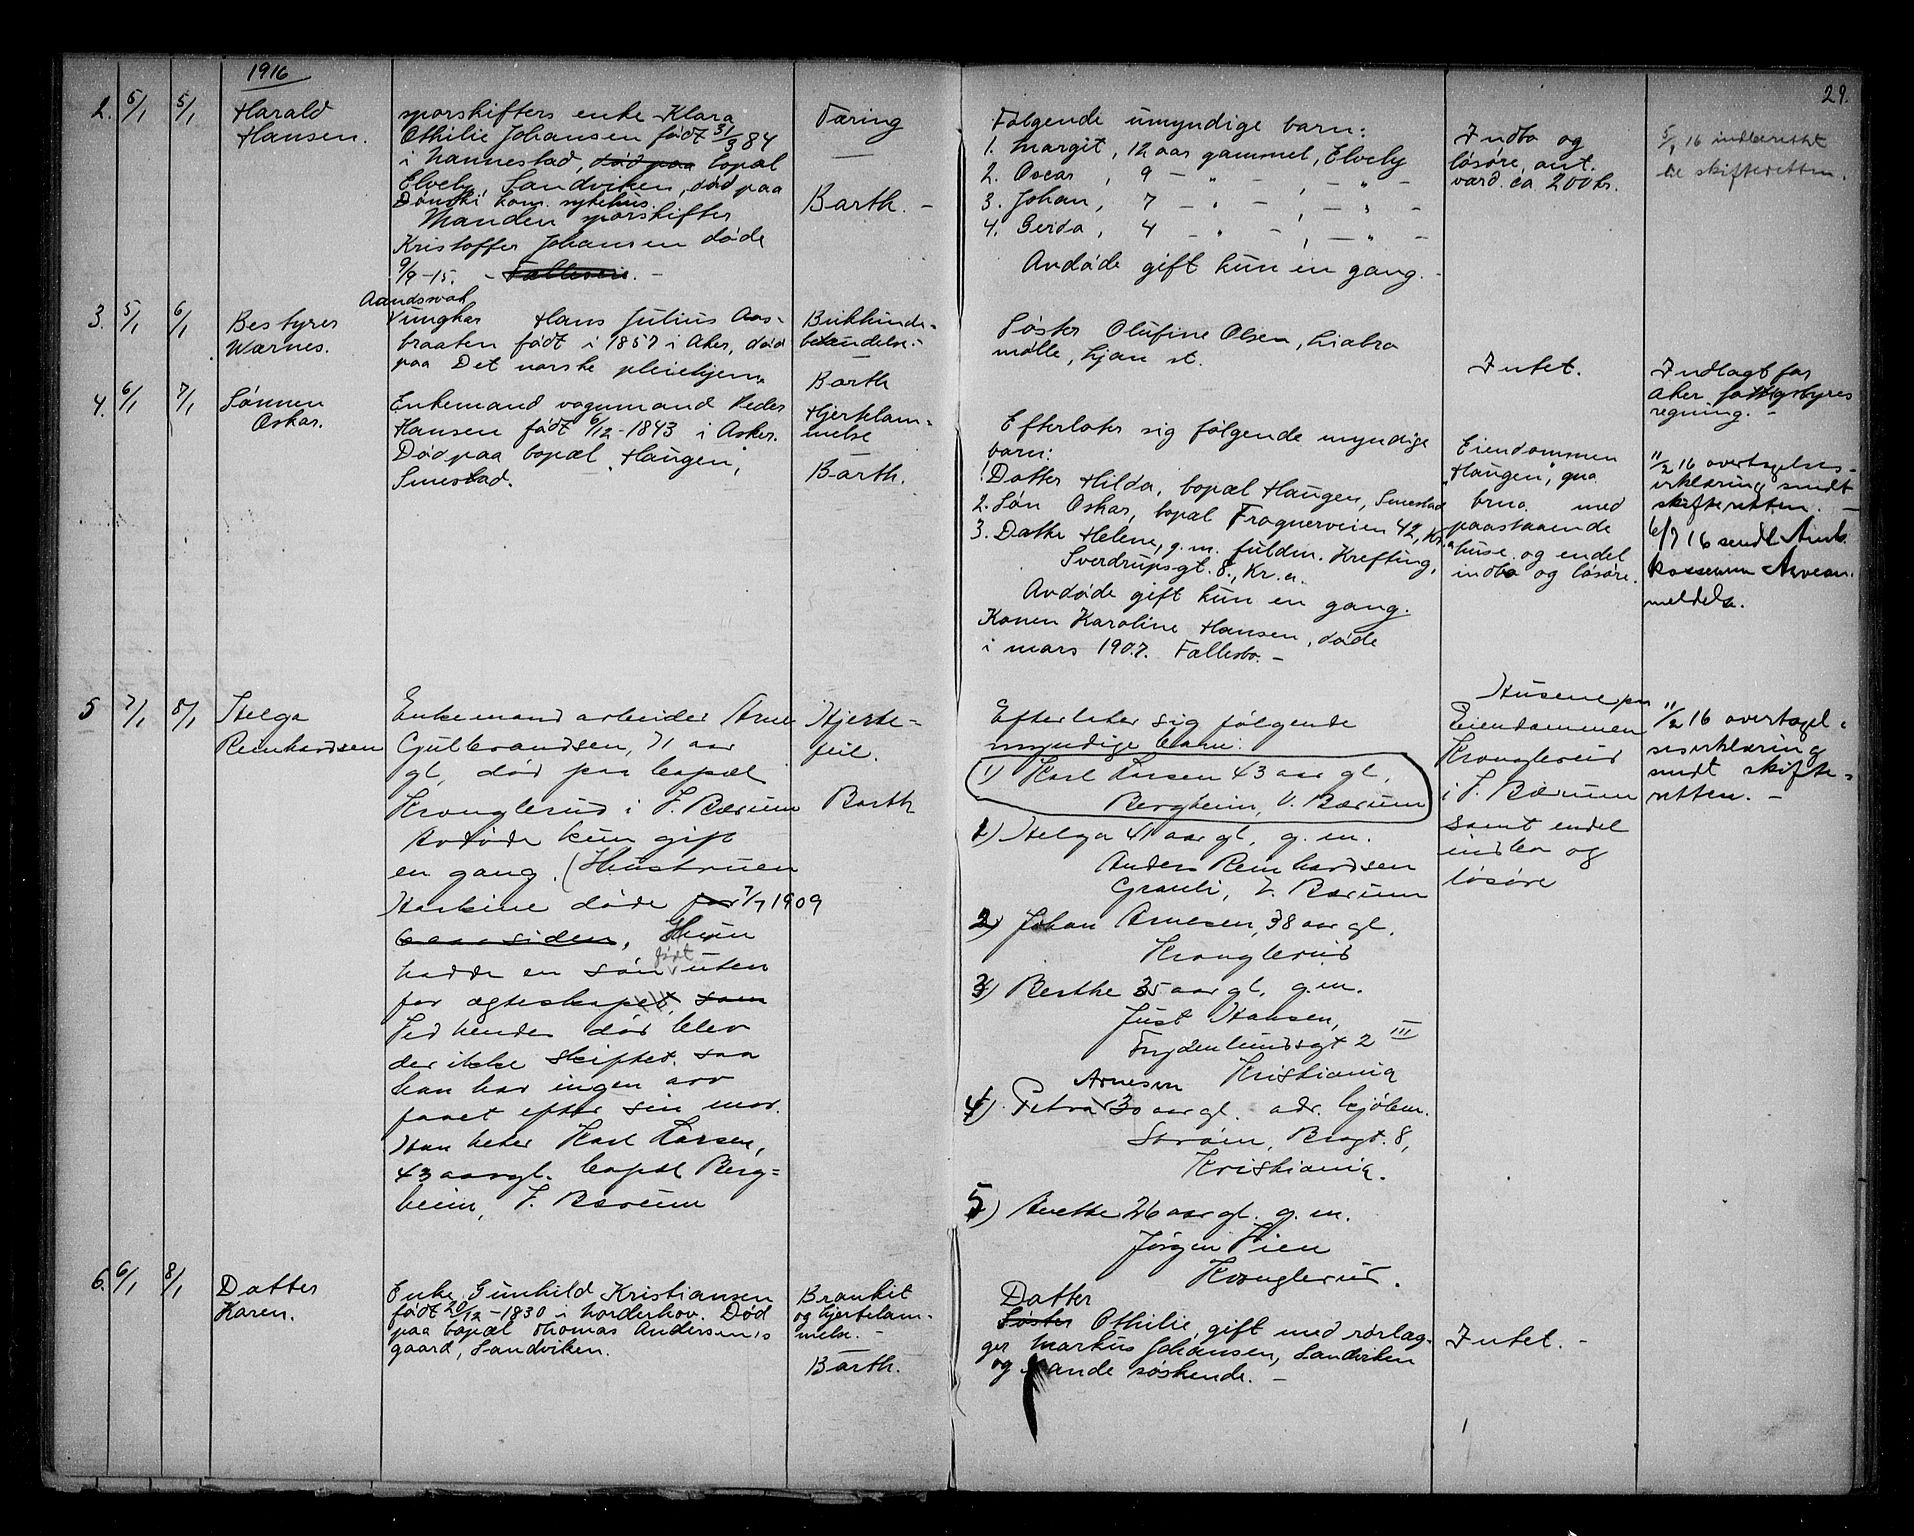 1916
29.
2. 5/1 5/1 Harald
Hansen.
sporskifters enke Klara
Othilie Johansen født 31/3 84
i Nannestad, død paa bopæl
Elvely, Sandviken, død paa
Dønski kom. sykehus.
Manden sporskifter
Kristoffer Johansen døde
9/9-15. - Fællesei. -
Tæring
Barth. -
Følgende umyndige barn:
1. Margit, 12 aar gammel, Elvely
2. Oscar, 9 - " - , - " -
3. Johan, 7 - " - , - " -
4. Gerda, 4 - " - , - " -
Avdøde gift kun en gang. -
Indbo og
løsøre, ant.
værd. ca 200 kr.
5/1 16 indberettet
til skifteretten.
3. 5/1 6/1 Bestyrer
Wærnes.
Aandssvak
Ungkar Hans Julius Aas-
braaten født i 1857 i Aker, død
paa Det norske pleiehjem.
Bukhinde-
betændelse. -
Barth
Søster Olufine Olsen, Liabro
mølle, Ljan st.
Intet.
Indlagt for
Aker fattigstyres
regning. -
4. 6/1 7/1 Sønnen
Oskar.
Enkemand vognmand Peder
Hansen født 6/12-1843 i Asker.
Død paa bopæl "Haugen",
Smestad.
Hjertelam-
melse
Barth.
Efterlater sig følgende myndige
barn:
1. Datter Hilda, bopæl Haugen, Smestad
2. Søn Oskar, bopæl Frognerveien 42, Kr.a
3. Datter Helene, g.m. fuldm. Krefting,
Sverdrupsgt. 8, Kr.a.
Avdøde gift kun en gang.
Konen Karoline Hansen, døde
i mars 1907. Fællesbo. -
Eiendommen
"Haugen",
bruo. med
paastaaende
huse og endel
indbo og løsøre.
11/2 16 overtagelses-
erklæring sendt
skifteretten. -
6/7 16 sendt Amts
kassereren Arvean-
meldelse.
5 7/1 8/1 Helga
Reinhardsen
Enkemand arbeider Arne
Gulbrandsen, 71 aar
gl, død paa bopæl
Kronglerud i V. Bærum
Avdøde kun gift
en gang. (Hustruen
Karline døde for 7/7 1909
6 aar siden, Hun
hadde en søn født uten
for ægteskapet, som
Ved hendes død blev
der ikke skiftet. saa
han har ingen arv
faaet efter sin mor.
Han heter Karl Larsen,
43 aar gl. bopæl Berg-
heim, V. Bærum
Hjerte-
feil.
Barth
Efterlater sig følgende
myndige barn:
1) Karl Larsen 43 aar gl,
Bergheim, V. Bærum
1) Helga 41 aar gl, g.m.
Anders Reinhardsen
Grauli, V. Bærum
2) Johan Arnesen, 38 aar gl,
Kronglerud
3) Berthe 35 aar gl, g.m.
Just Hansen,
Frydenlundsgt 2 III
Kristiania
4) Petra Arnesen 30 aar gl. adr. kjøbm.
Sørøim, Brogt. 8,
Kristiania.
5) Anette 26 aar gl. g.m.
Jørgen Vien
Kronglerud.
Husene paa
Eiendommen
Kronglerud
i V. Bærum
samt endel
indbo og
løsøre
11/2 16 overtagel-
seserklæring
sendt skifte-
retten. -
6. 6/1 8/1 Datter
Karen.
Enke Gunhild Kristiansen
født 20/12-1830 i Norderhov. Død
paa bopæl Thomas Andersens
gaard, Sandviken.
Bronkit
og hjertelam-
melse. -
Barth.
Datter
Søster Othilie, gift med rørlæg-
ger Markus Johansen, Sandviken
og andre søskende. -
Intet. -